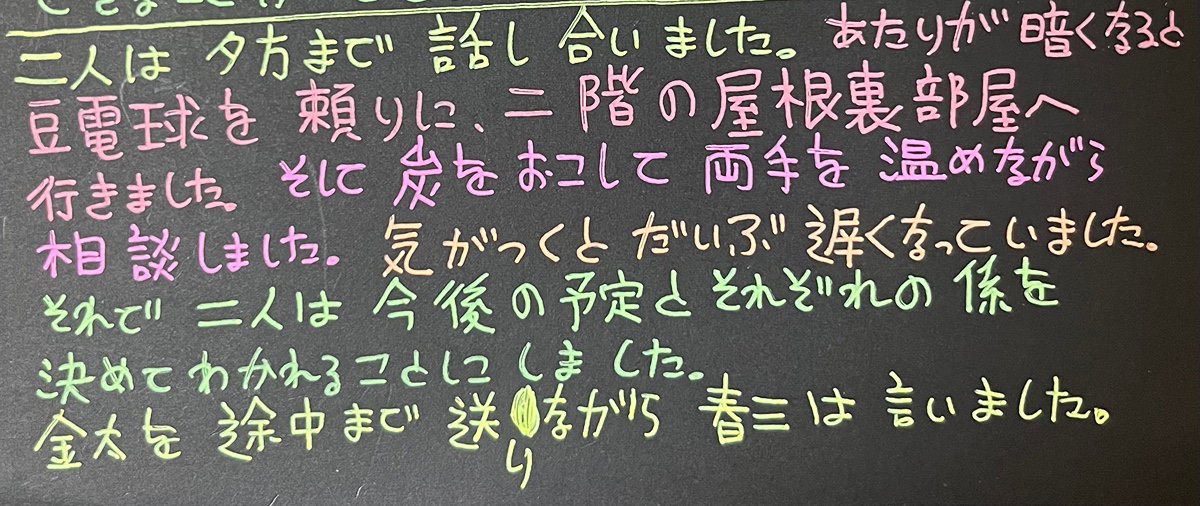 二人は 夕方まで 話し合いました。 あたりが 暗くなると
豆電球を 頼りに、二階の屋根裏部屋へ
行きました。 そして 炭を おこして 両手を 温めながら
相談しました。 気がつくと だいぶ 遅くなっていました。
それで 二人は 今後の予定と それぞれの 係を
決めて わかれることに しました。
金太を 途中まで 送りながら 春三は 言いました。